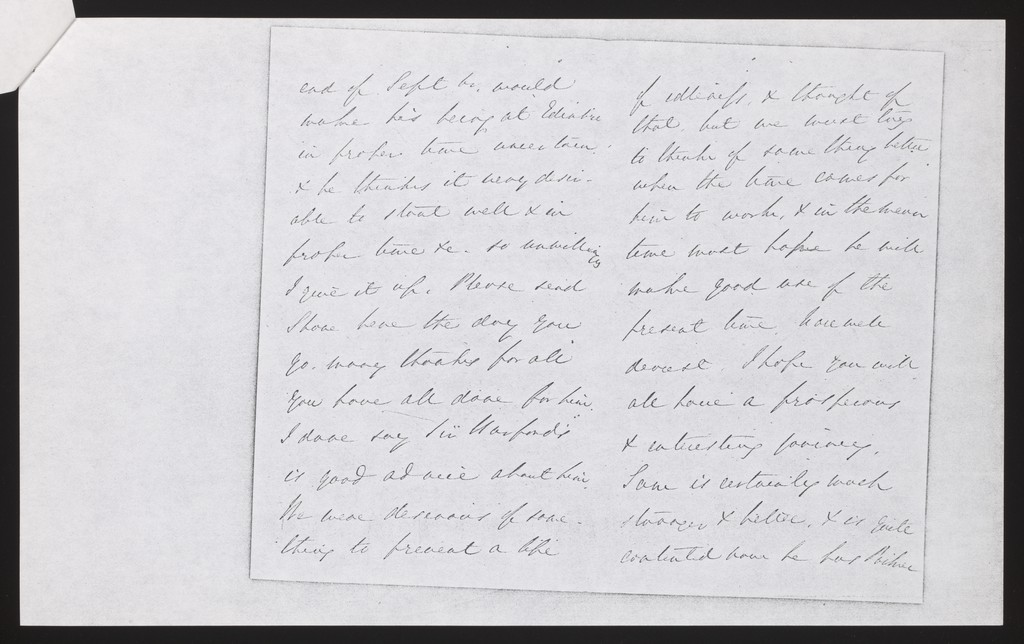 end of Septbr, would
make his being at Edinbro
in proper time uncertain.
& he thinks it very desir-
able to start well & in
proper time &c. so unwillingly
I give it up. Please send
here the day you
go. many thanks for all
you have all done for him.
I dare say Sir
is good advice about him.
We were desirous of some-
thing to prevent a life
of idleness, & thought of
that. but we must try
to think of something better
when the time comes for
him to work, & in the mean
time must hope he will
make good use of the
present time. Farewell
dearest. I hope you will
all have a prosperous
& interesting journey.
Sam is certainly much
stronger & better, & is quite
contented now he has